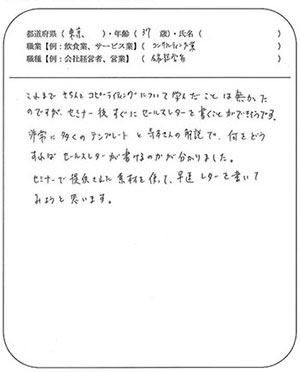 都道府県（東京　　）・年齢（37　歳）・氏名（　　　　　　）
職業【例：飲食業、サービス業】（コンサルティング業　　）
職種【例：会社経営者、営業】（会社経営者　　）
これまできちんとコピーライティングについて学んだことは無かった
のですが、セミナー後すぐにセールスレターを書くことができそうです。
非常に多くのテンプレートと寺本さんの解説で、何をどう
すればセールスレターが書けるのかが分かりました。
セミナーで提供された素材を使って、早速レターを書いて
みようと思います。